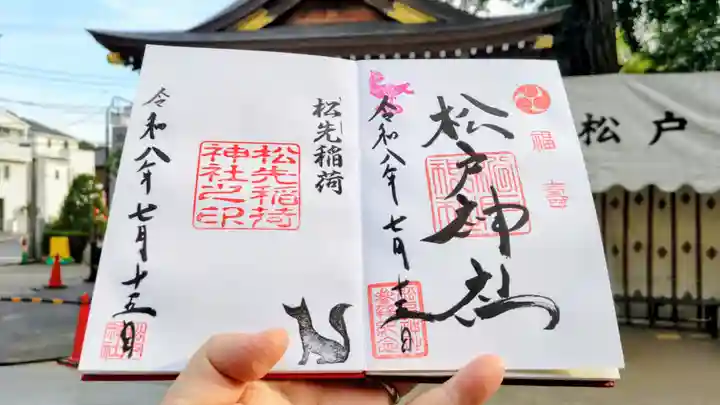 松戸神社
福寿
令和八年七月十五日
松先稲荷
松先稲荷
神社之印
令和八年七月十五日
松戸